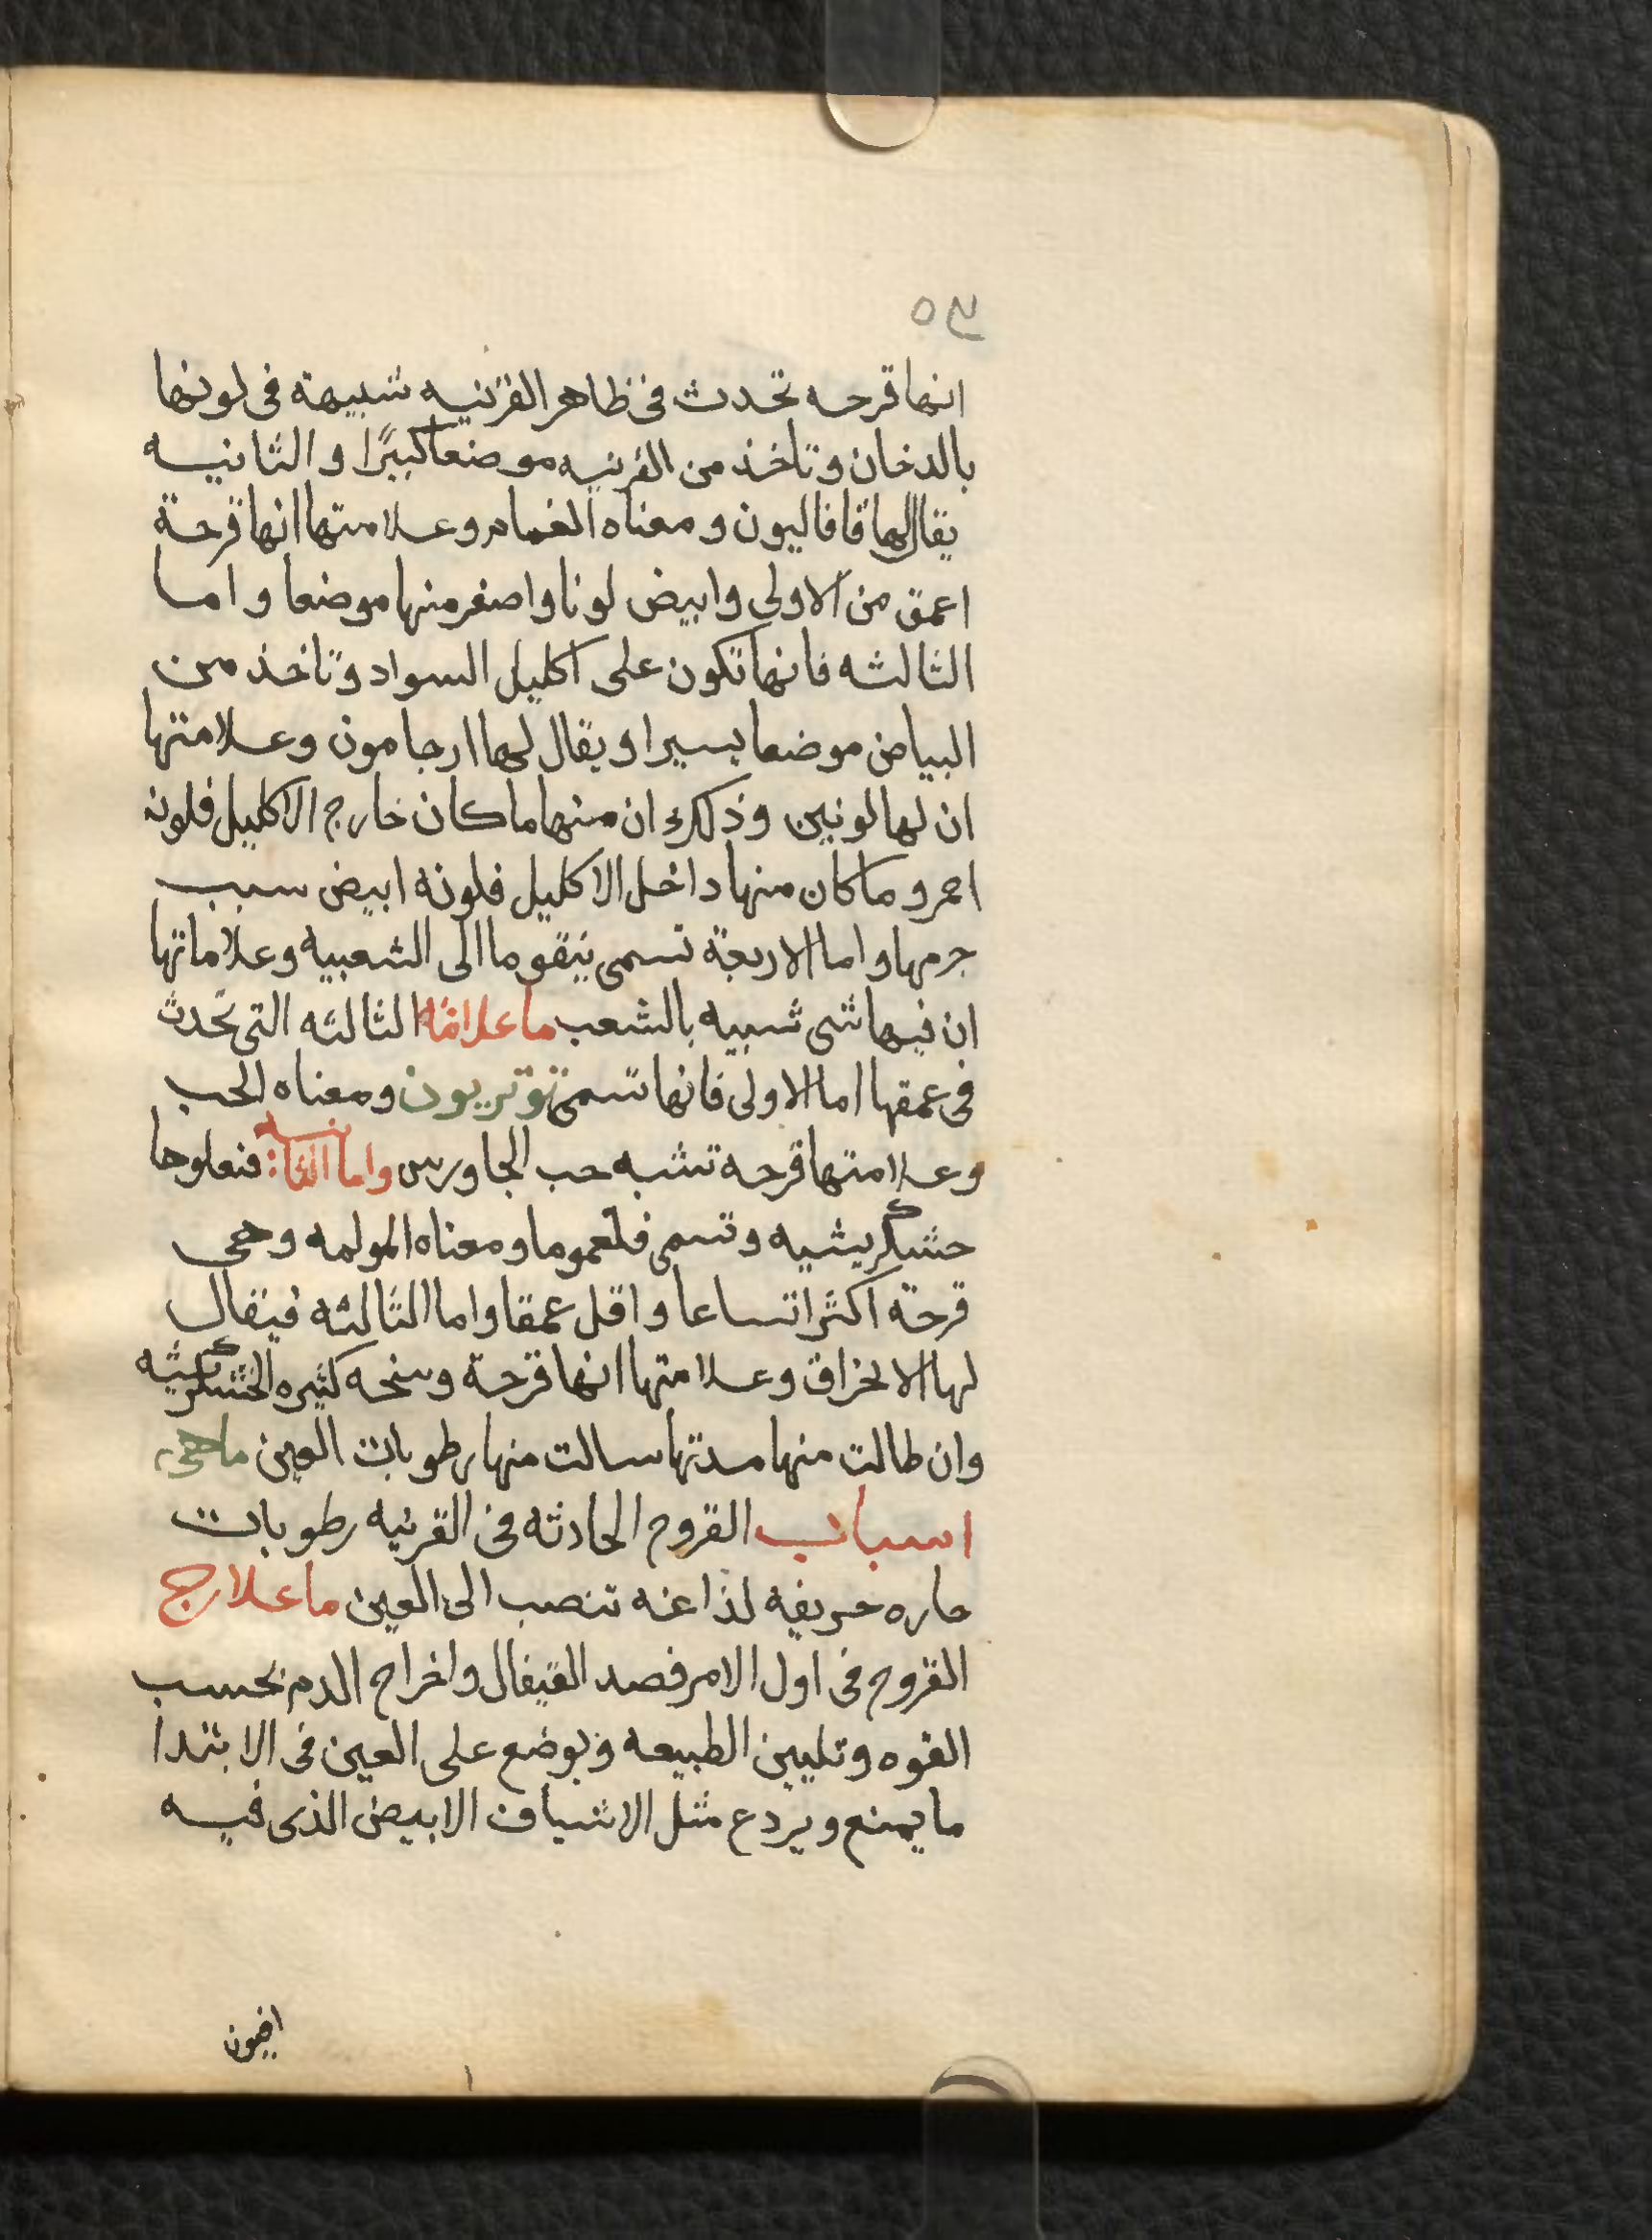 انها قرحه تحدث فى ظاهر القرنيه شبيهة فى لونها
بالدخان وتاخذ من القرنيه موضعا كبيرًا والثانيه
يقال لها قافاليون ومعناه الغمام وعلامتها انها قرحة
اعمق من الاولى وابيض لونا واصغر منها موضعا واما
الثالثه فانها تكون على اكليل السواد وتاخذ من
البياض موضعا يسيرا ويقال لها ارجامون وعلامتها
ان لها لونين وذلك ان منها ما كان خارج الاكليل فلونه
احمر وما كان منها داخل الاكليل فلونه ابيض سبب
جرمها واما الاربعة تسمى نيقوما الى الشعبيه وعلاماتها
ان فيها شى شبيه بالشعب ما علامة الثالثه التى تحدث
فى عمقها اما الاولى فانها تسمى توتريون ومعناه الحب
وعلامتها قرحه تشبه حب الجاورس واما الثانيه فتعلوها
حشكريشيه وتسمى فلغموما ومعناه المولمه وهى
قرحة اكثر اتساعا واقل عمقا واما الثالثه فيقال
لها الانخراق وعلامتها انها قرحة وسخه كثيره الخشكريشيه
وان طالت منها مدتها سالت منها رطوبات العين ما هى
اسباب القروح الحادثه فى القرنيه رطوبات
حاره حريفه لذاعه تنصب الى العين ما علاج
القروح فى اول الامر فصد القيفال واخراج الدم بحسب
القوه وتليين الطبيعه ويوضع على العين فى الابتدا
ما يمنع ويردع مثل الاشياف الابيض الذى فيه
افيون